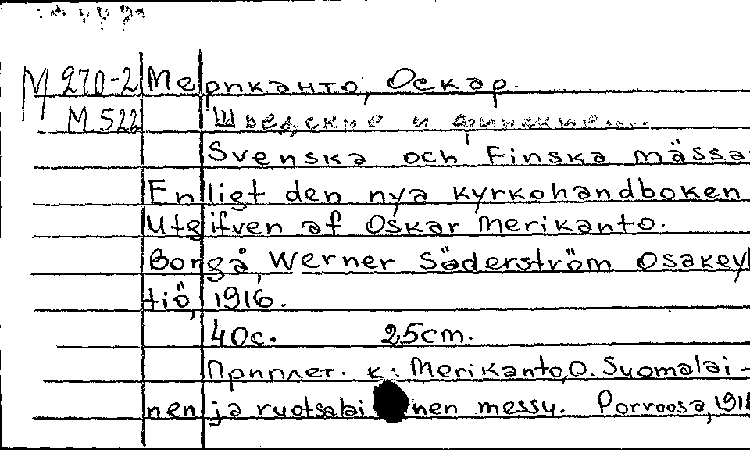 М 270-2 Мериканто, Оскар.
М 522 Шведские и
Svenska och Finska mässa
Enligt den nya kyrkohandboken
Utgifven af Oskar Merikanto.
Borgå, Werner Söderström Osakey
tiö, 1916.
40с. 25cm.
Приплет. к: Merikanto, O. Suomalai-
nen ja ruotsalainen messu. Porvoosa,